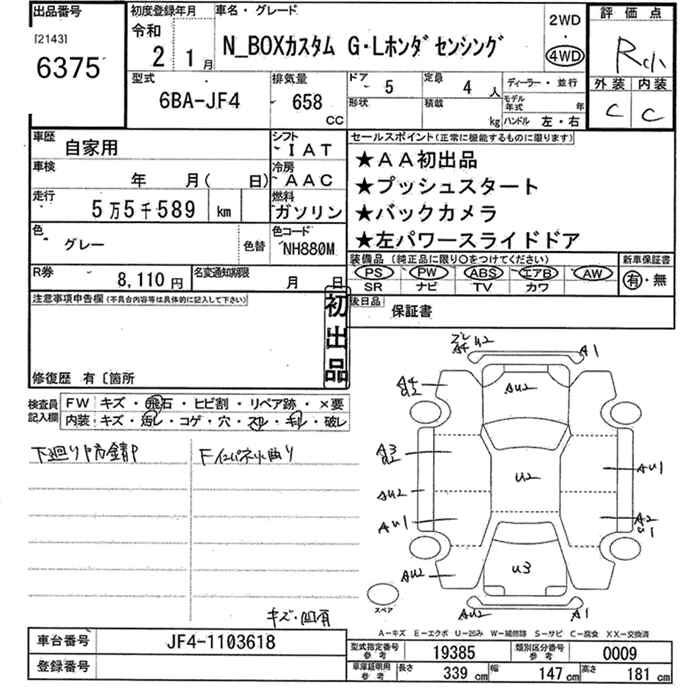 出品番号 初度登録年月 車名・グレード 2WD 評価点
[2143] 令和 4WD
6375 2 1月 N_BOXカスタム G・Lホンダセンシング R小
型式 排気量 ドア 5 定員 4人 ディーラー・並行 外装 内装
6BA-JF4 658 CC 形状 積載 kg モデル年式 年 C C
ハンドル 左・右
車歴 自家用 シフト IAT セールスポイント(正常に機能するものに限ります)
車検 年 月( 日) 冷房 AAC ★AA初出品
走行 5万5千589 km 燃料 ガソリン ★プッシュスタート
★バックカメラ
色 グレー 色替 色コード NH880M ★左パワースライドドア
装備品(純正品に限り○をつけてください) 新車保証書
R券 8,110円 名変通知期限 月 日 PS PW ABS エアB AW 有・無
SR ナビ TV カワ
注意事項申告欄(不具合内容等は具体的に記入して下さい) 初出品 後日品 保証書
修復歴 有〔箇所
検査員記入欄 FW キズ・飛石・ヒビ割・リペア跡・×要
内装 キズ・汚レ・コゲ・穴・スレ・キレ・破レ
下廻り 錆 F インパネ 曲り
キズ・凹有
U2 A1
A4
AU2
A3
U2
AU1
AU2
AU1 A2
U1
AU2 U3
スペア AU2 A1
A-キズ E-エクボ U-凹み W-補修跡 S-サビ C-腐食 XX-交換済
車台番号 JF4-1103618 型式指定番号 参考 19385 類別区分番号 参考 0009
登録番号 車庫証明用 参考 長さ 339 cm 幅 147 cm 高さ 181 cm